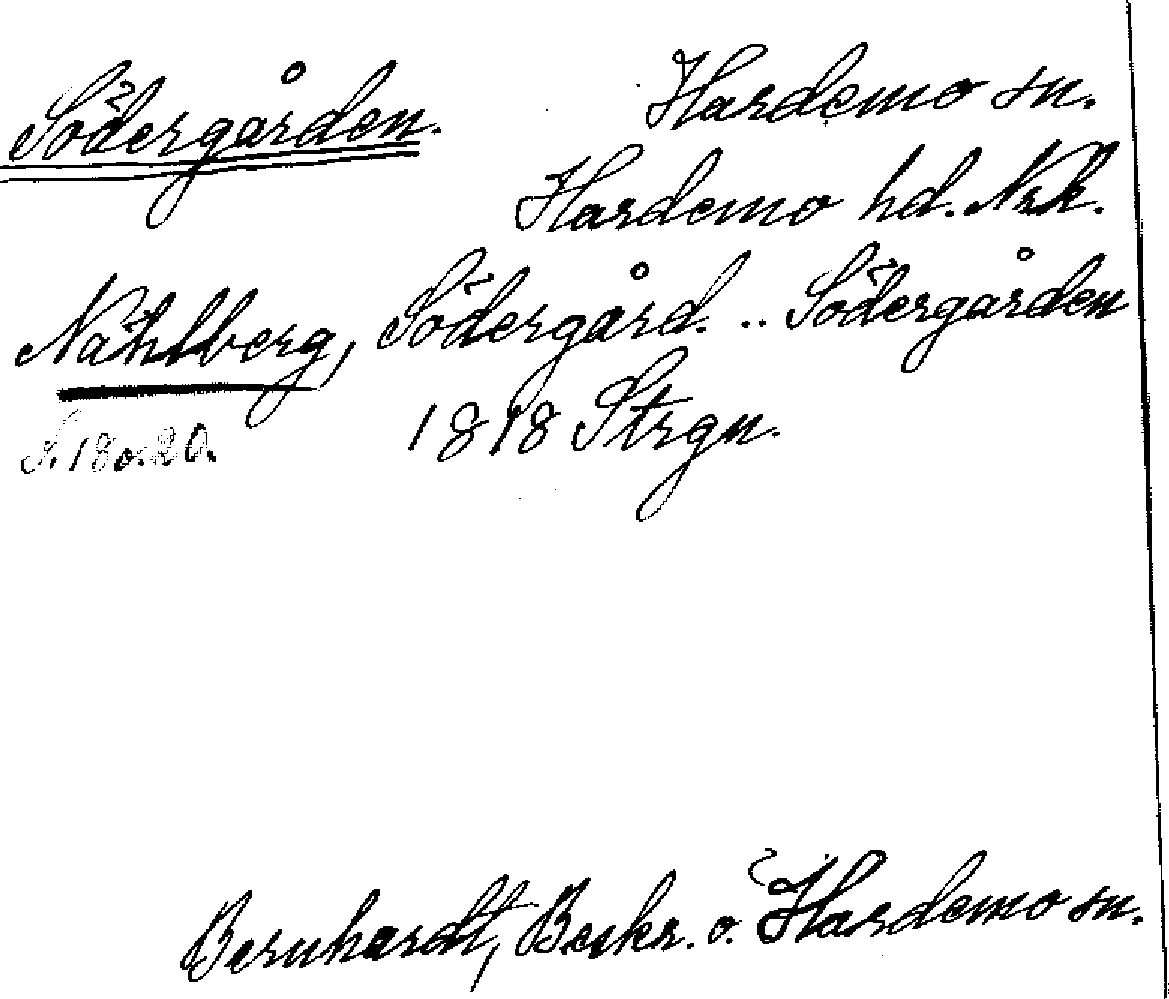 Södergården. Hardemo sn.
Hardemo hd. Nrk.
Nählberg, Södergård. .. Södergården
S. 18 o. 20. 1818 Strgn.
Bernhardt, Beskr. ö. Hardemo sn.